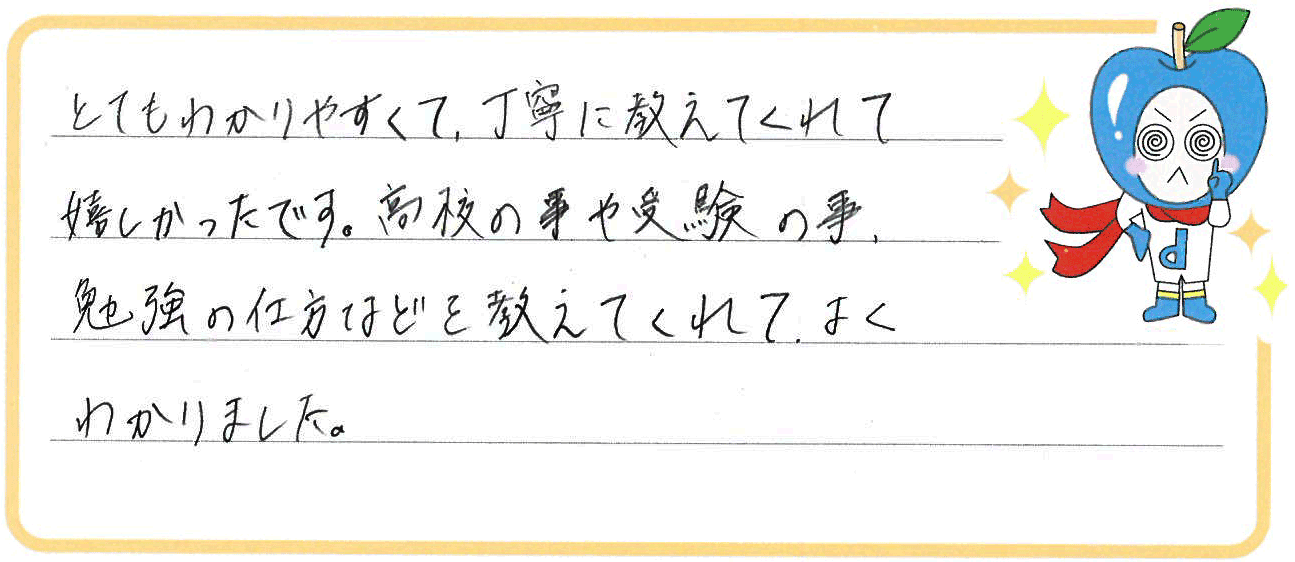 とてもわかりやすくて、丁寧に教えてくれて
嬉しかったです。高校の事や受験の事、
勉強の仕方などを教えてくれて、よく
わかりました。
d